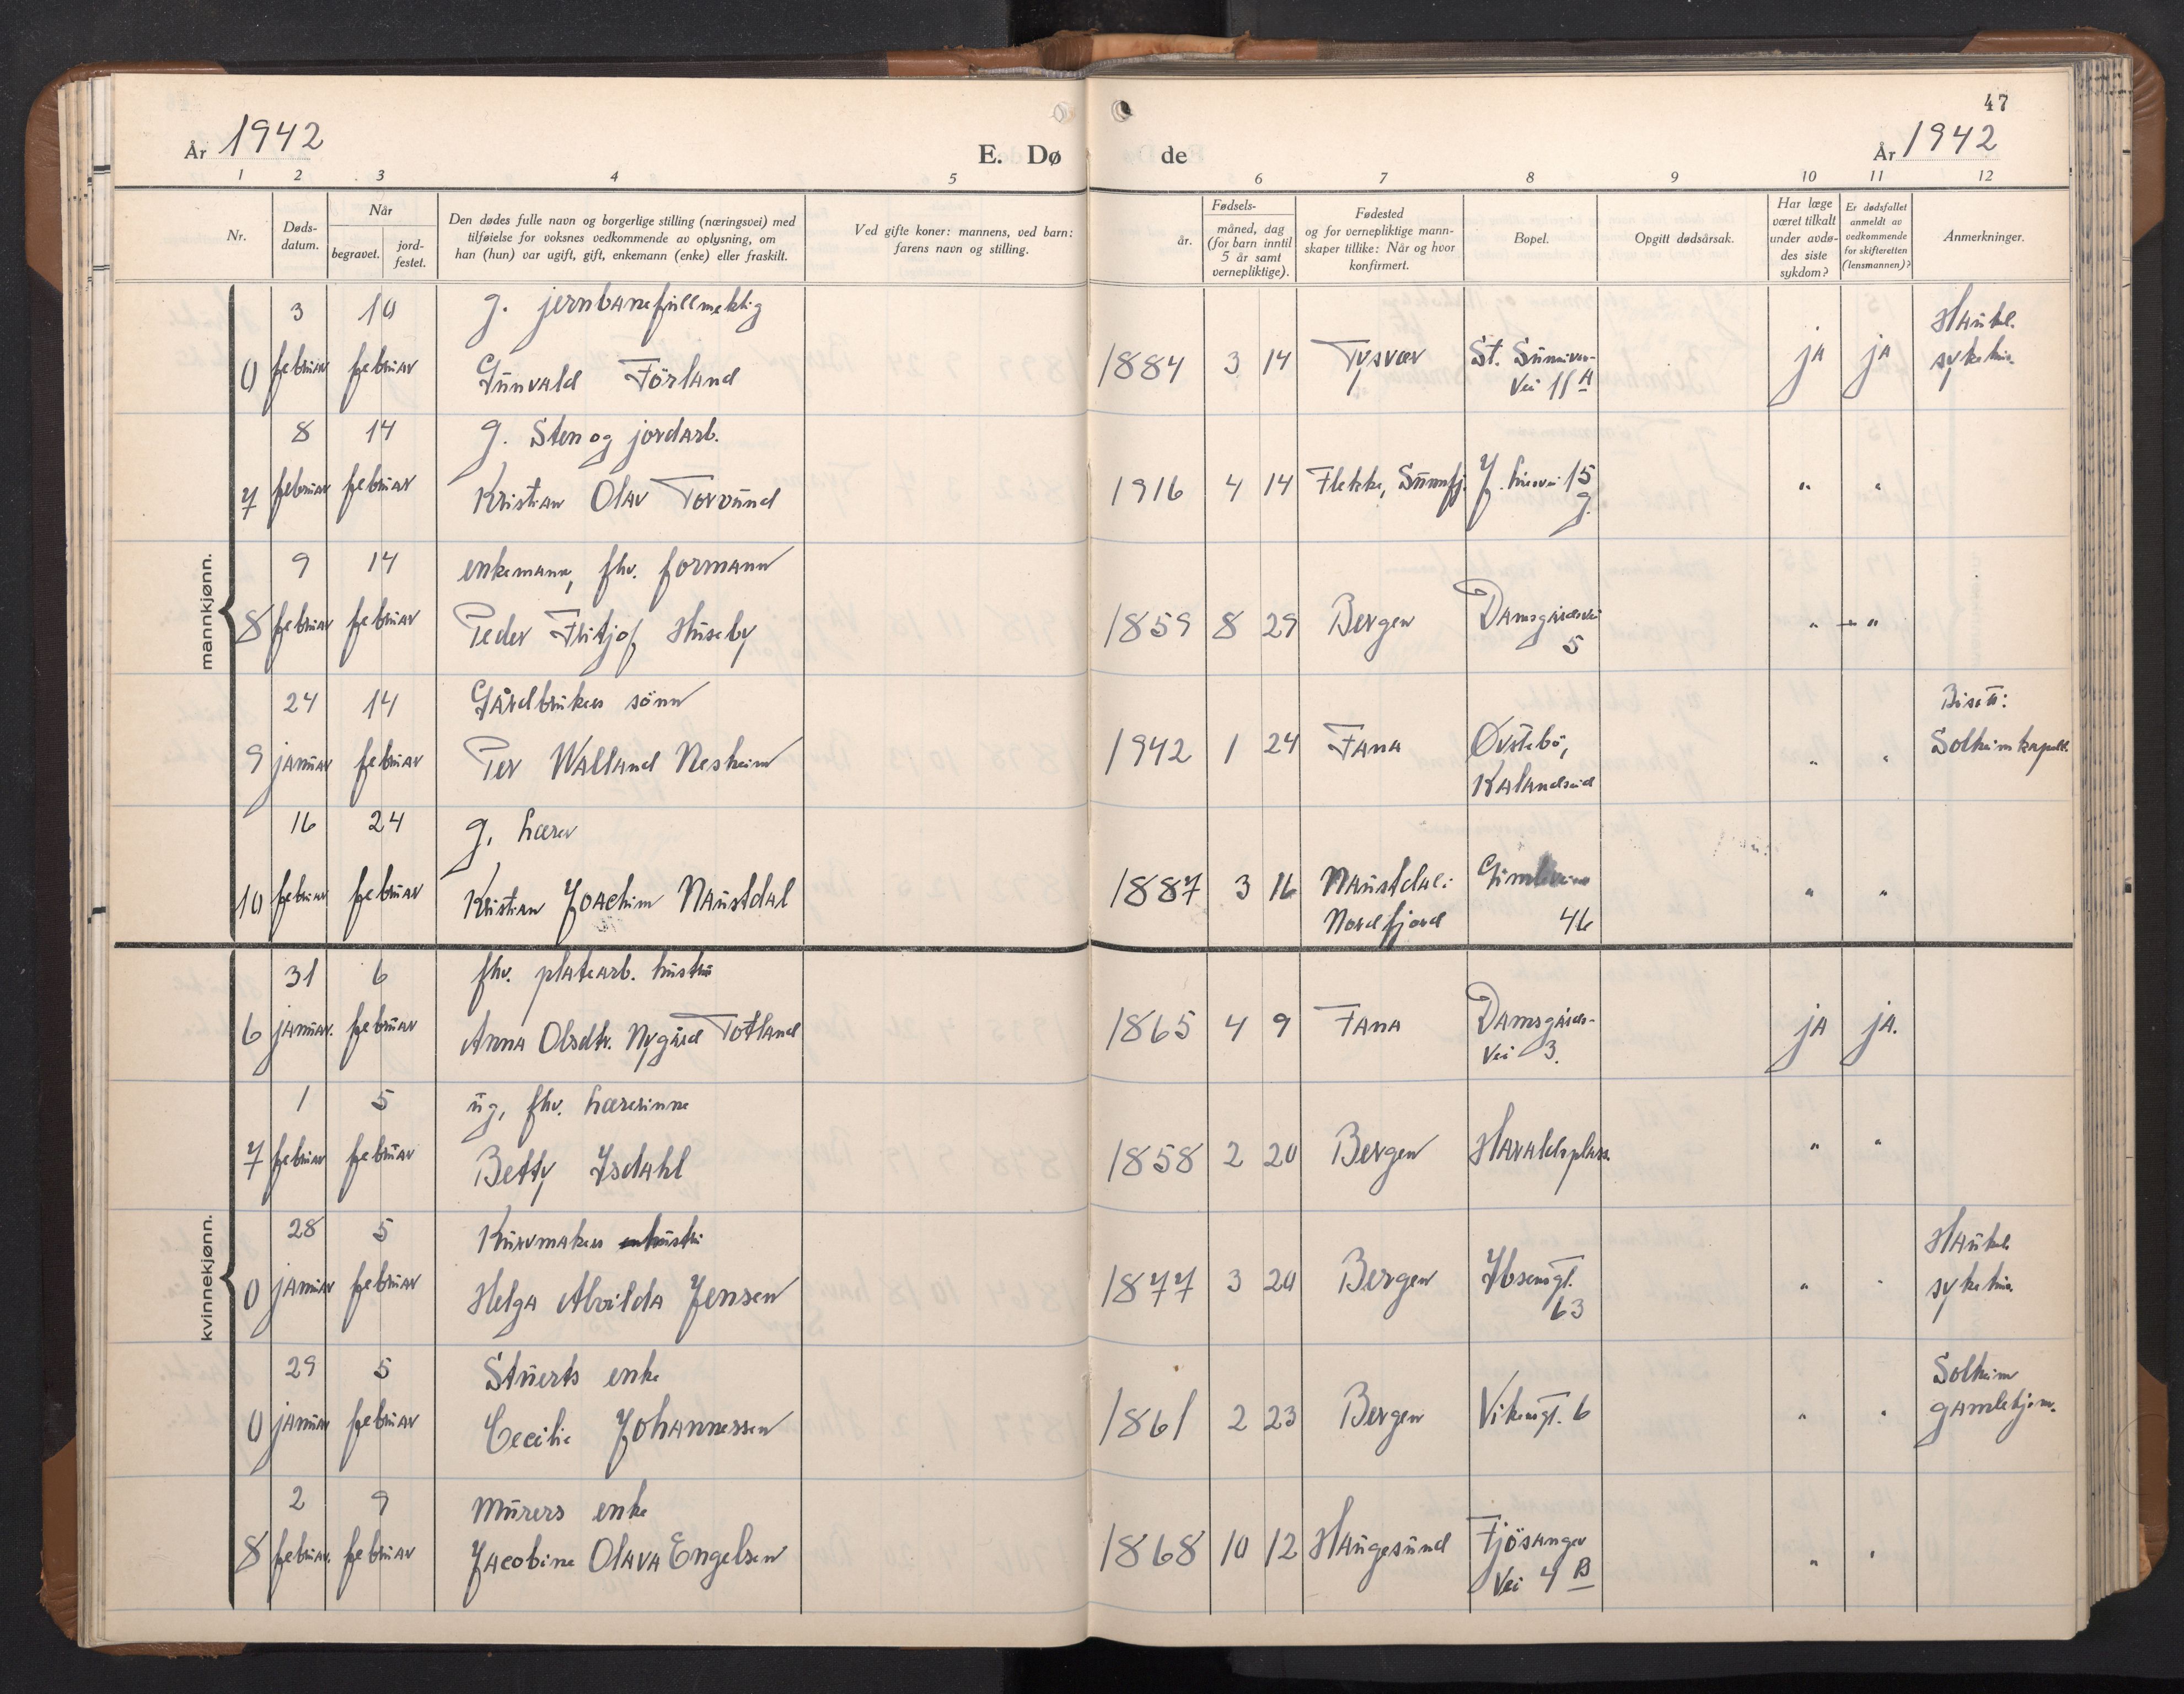 47
År 1942
E. Dø
de
År 1942
1 2 3 4 5 6 7 8 9 10 11 12
Nr.
Døds-
datum.
Når
begravet.
jord-
festet.
Den dødes fulle navn og borgerlige stilling (næringsvei) med
tilføielse for voksnes vedkommende av oplysning, om
han (hun) var ugift, gift, enkemann (enke) eller fraskilt.
Ved gifte koner: mannens, ved barn:
farens navn og stilling.
Fødsels-
år.
måned, dag
(for barn inntil
5 år samt
vernepliktige).
Fødested
og for vernepliktige mann-
skaper tillike: Når og hvor
konfirmert.
Bopel.
Opgitt dødsårsak.
Har læge
været tilkalt
under avdø-
des siste
sykdom?
Er dødsfallet
anmeldt av
vedkommende
for skifteretten
(lensmannen)?
Anmerkninger.
mannkjønn.
3 10 g. jernbanefullmektig Haukel.
0 februar februar Gunvald Förland 1884 3 14 Tysvær St. Sunniva- ja ja sykehus.
Vei 11 A
8 14 g. Sten og jordarb.
7 februar februar Kristian Olav Torvund 1916 4 14 Flekke, Sunnfj. 15 " "
g.
9 14 enkemann, fhv. formann
8 februar februar Peder Fritjof Huseby 1859 8 29 Bergen Damsgårdsvei " "
5
24 14 Gårdbrukers sönn Bisatt:
9 januar februar Per Walland Nesheim 1942 1 24 Fana Øvstebö, " " Solheim kapell.
Kalandseid
16 24 g. lærer
10 februar februar Kristian Joachim Naustdal 1887 3 16 Naustdal: Gimleveien " "
Nordfjord 46
kvinnekjønn.
31 6 fhv. platearb. hustru
6 januar. februar Anna Olsdtr. Nygård Totland 1865 4 9 Fana Damsgårds- ja ja.
Vei 3.
1 5 ug, fhv. lærerinne
7 februar februar Betty Isdahl 1858 2 20 Bergen Haraldsplass. " "
28 5 Kurvmakers hustru Haukel.
0 januar februar Helga Alvilda Jensen 1877 3 20 Bergen Ibsensgt. " " sykehus.
63
29 5 Stuerts enke Solheim
0 januar februar Cecilie Johannessen 1861 2 23 Bergen Vikensgt. 6 " " gamlehjem.
2 9 Murers enke
8 februar. februar Jacobine Olava Engelsen 1868 10 12 Haugesund Fjösanger " "
Vei 4 B